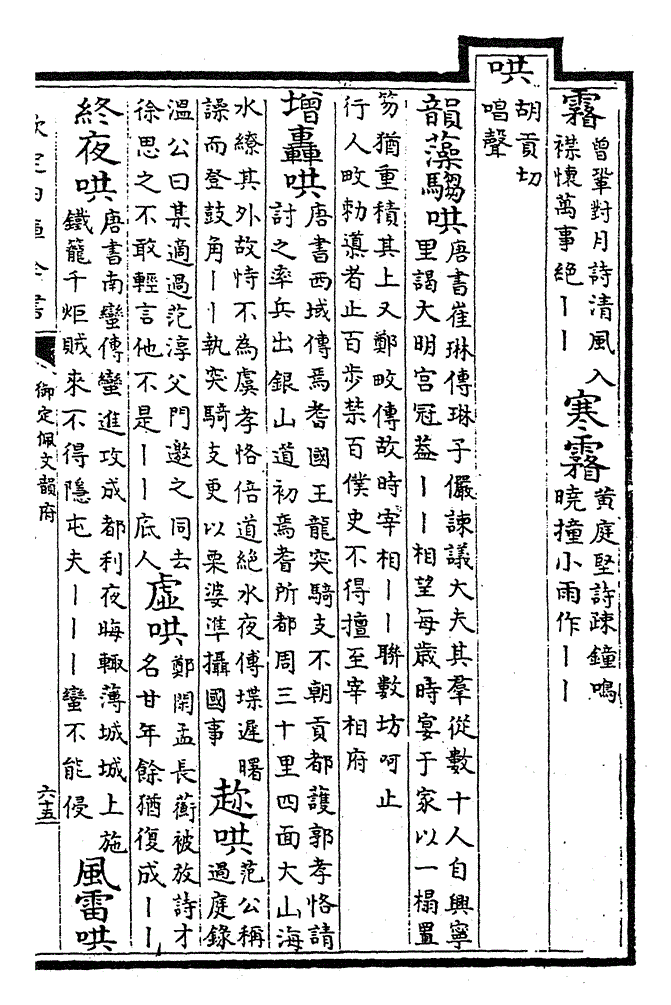 霿 曾鞏對月詩清風入
襟懷萬事絶——
寒霿 黃庭堅詩疎鐘鳴
曉撞小雨作——
哄 胡貢切
唱聲
韻藻騶哄 唐書崔琳傳琳子儼諫議大夫其羣從數十人自興寧
里謁大明宫冠葢——相望每歲時宴于家以一榻置
笏猶重積其上又鄭畋傳故時宰相——聯數坊呵止
行人畋勅導者止百步禁百僕史不得擅至宰相府
增轟哄 唐書西域傳焉耆國王龍突騎支不朝貢都護郭孝恪請
討之率兵出銀山道初焉耆所都周三十里四面大山海
水繚其外故恃不為虞孝恪倍道絶水夜傅堞遲曙
譟而登鼓角——執突騎支更以栗婆準攝國事
趂哄 范公稱
過庭錄
溫公曰某適過范淳父門邀之同去
徐思之不敢輕言他不是——底人
虛哄 鄭閑孟長蘅被放詩才
名廿年餘猶復成——
終夜哄 唐書南蠻傳蠻進攻成都利夜晦輒薄城城上施
鐵籠千炬賊來不得隱屯夫———蠻不能侵
風雷哄
欽定四庫全書
御定佩文韻府
六十五